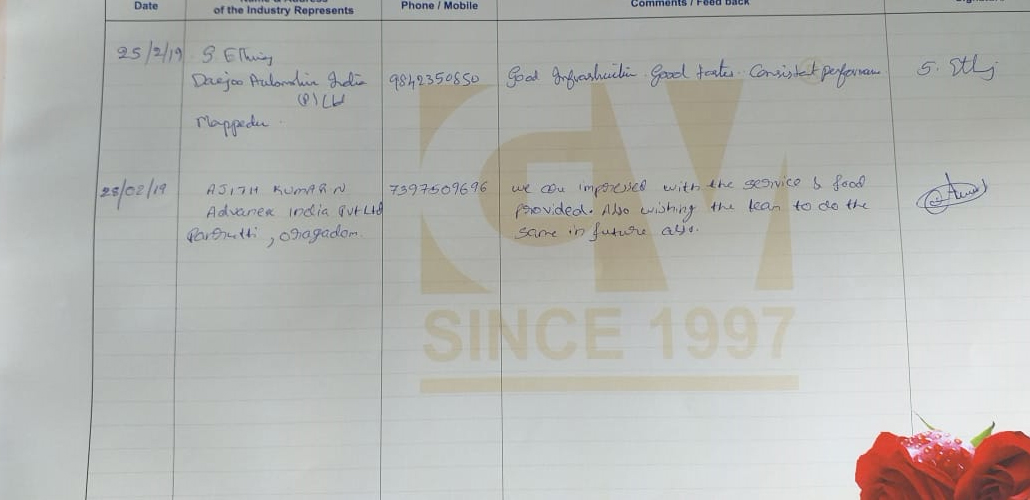 Date
of the Industry Represents
Phone / Mobile
Comments / Feed back
25/2/19
S
India
(P) Ltd
Mappedu.
9842350850
Good Good taste. Consistent performance
S.
28/02/19
AJITH KUMAR N
Advanex India Pvt Ltd
, Oragadam.
7397509696
we are impressed with the service & food
provided. Also wishing the team to do the
same in future also.
SINCE 1997